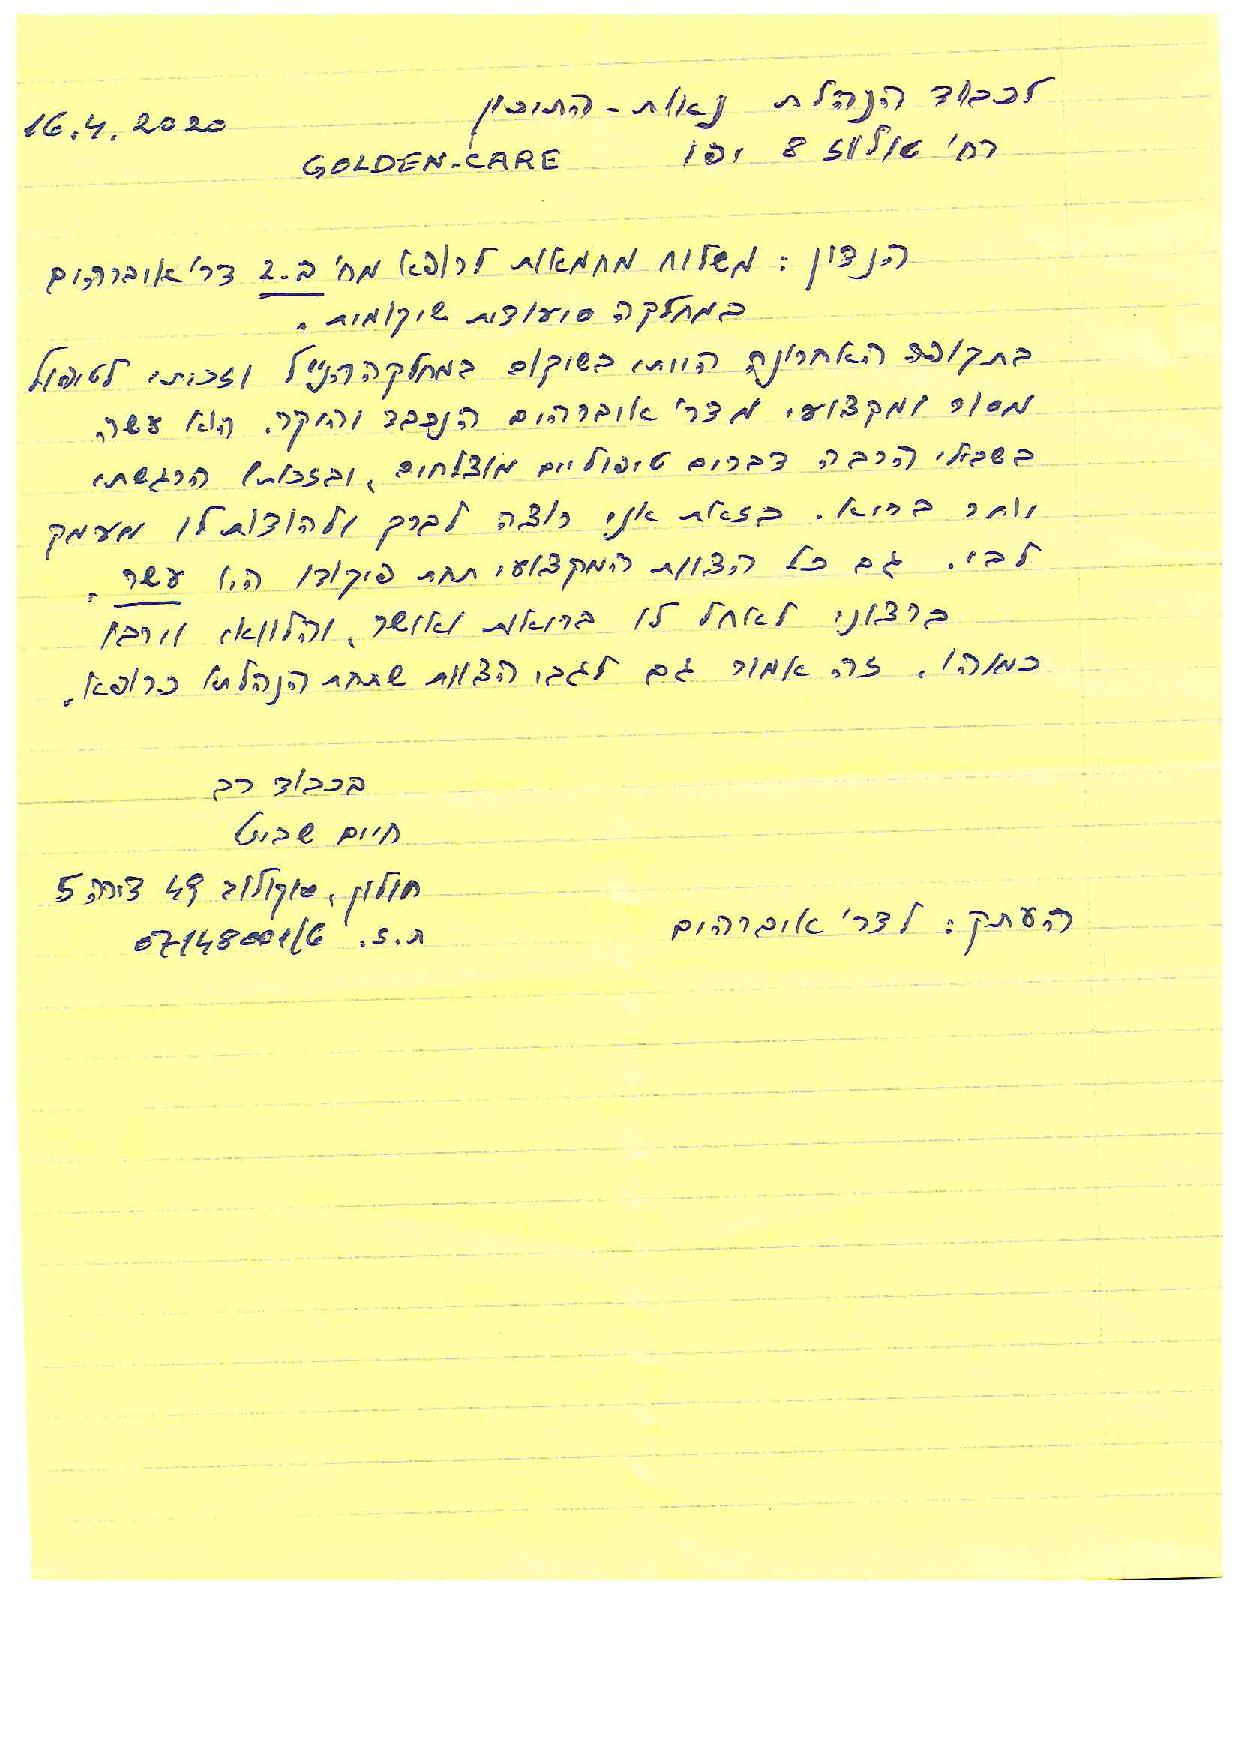 לכבוד הנהלת נאות-התיכון
16.4.2020
רח' טולוז 8 יפו GOLDEN-CARE
הנדון: משלוח מחמאות לרופא מח' ב.2 דר' אוברהים
במחלקה סיעודית שיקומית.
בתקופה האחרונה הייתי בשיקום במחלקה הנ"ל וזכיתי לטיפול
מסור ומקצועי מדר' אוברהים הנכבד והיקר. הוא עשה
בשבילי הרבה דברים טיפוליים מוצלחים, ובזכותו הרגשתי
יותר בריא. בזאת אני רוצה לברך ולהודות לו מעמק
לבי. גם כל הצוות המקצועי תחת פיקודו היו עשר.
ברצוני לאחל לו בריאות ואושר, והלוואי וירבו
כמוהו. זה אמור גם לגבי הצוות שתחת הנהלתו כרופא.
בכבוד רב
חיים שביט
חולון, סוקולוב 49 דירה 5
ת.ז. 07148001/6
העתק: לדר' אוברהים